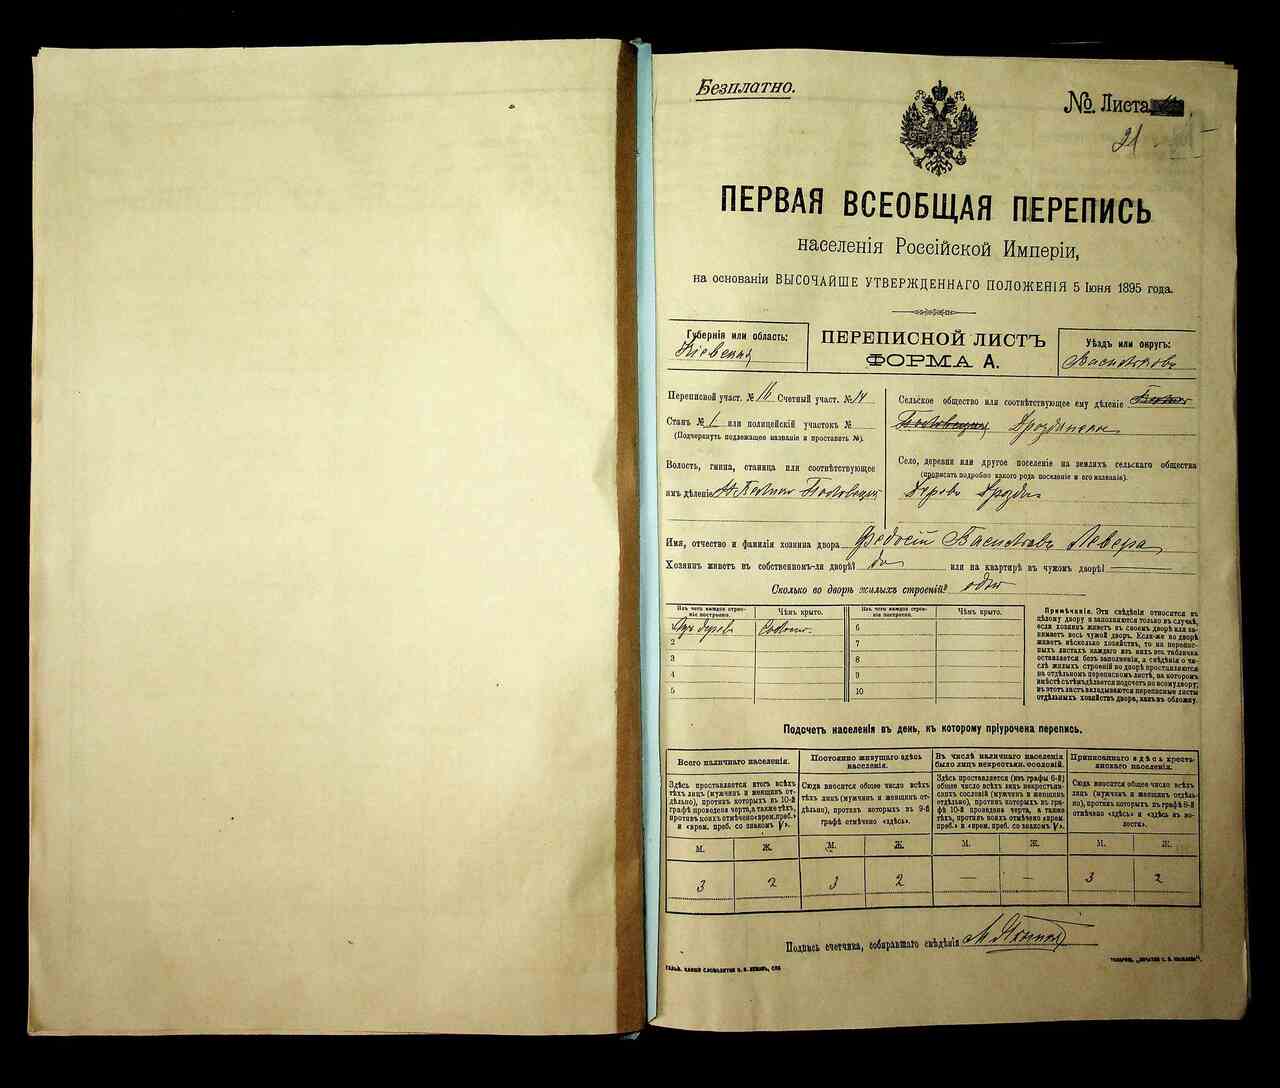 Безплатно.
№ Листа
21
ПЕРВАЯ ВСЕОБЩАЯ ПЕРЕПИСЬ
населенія Россійской Имперіи,
на основаніи ВЫСОЧАЙШЕ УТВЕРЖДЕННАГО ПОЛОЖЕНІЯ 5 Іюня 1895 года.
Губернія или область:
Кіевская
ПЕРЕПИСНОЙ ЛИСТЪ
ФОРМА А.
Уѣздъ или округъ:
Васильковъ
Переписной участ. № 16 Счетный участ. № 14
Станъ № 1 или полицейскій участокъ №
(Подчеркнуть подлежащее названіе и проставить №).
Волость, гмина, станица или соотвѣтствующее
имъ дѣленіе
Сельское общество или соотвѣтствующее ему дѣленіе
Село, деревня или другое поселеніе на земляхъ сельскаго общества
(прописать подробно какого рода поселеніе и его названіе).
Дрозды
Имя, отчество и фамилія хозяина двора Федосій Васильевъ Левера
Хозяинъ живетъ въ собственномъ-ли дворѣ? да или на квартирѣ въ чужомъ дворѣ?
Сколько во дворѣ жилыхъ строеній? одно
Изъ чего каждое строеніе построено.
Чѣмъ крыто.
Изъ чего каждое строеніе построено.
Чѣмъ крыто.
Изъ дерева
6
2
7
3
8
4
9
5
10
Примѣчаніе. Эти свѣдѣнія относятся къ
цѣлому двору и заполняются только въ случаѣ,
если хозяинъ живетъ въ своемъ дворѣ или за-
нимаетъ весь чужой дворъ. Если-же во дворѣ
живетъ нѣсколько хозяйствъ, то на перепис-
ныхъ листахъ каждаго изъ нихъ эта табличка
оставляется безъ заполненія, а свѣдѣнія о чи-
слѣ жилыхъ строеній во дворѣ проставляются
на отдѣльномъ переписномъ листѣ, на которомъ
вмѣстѣ съ тѣмъ дѣлается подсчетъ по всему двору;
въ этотъ листъ вкладываются переписные листы
отдѣльныхъ хозяйствъ двора, какъ въ обложку.
Подсчетъ населенія въ день, къ которому пріурочена перепись.
Всего наличнаго населенія.
Здѣсь проставляется итогъ всѣхъ
тѣхъ лицъ (мужчинъ и женщинъ от-
дѣльно), противъ которыхъ въ 10-й
графѣ проведена черта, а также тѣхъ,
противъ коихъ отмѣчено «врем. преб.»
и «врем. преб. со знакомъ V».
Постоянно живущаго здѣсь
населенія.
Сюда вносится общее число всѣхъ
тѣхъ лицъ (мужчинъ и женщинъ от-
дѣльно), противъ которыхъ въ 9-й
графѣ отмѣчено «здѣсь».
Въ числѣ наличнаго населенія
было лицъ некрестьян. сословій.
Здѣсь проставляется (изъ графы 6-й)
общее число всѣхъ лицъ некрестьян-
скихъ сословій (мужчинъ и женщинъ
отдѣльно), противъ которыхъ въ гра-
фѣ 10-й проведена черта, а также
тѣхъ, противъ коихъ отмѣчено «врем.
преб.» и «врем. преб. со знакомъ V».
Приписаннаго здѣсь кресть-
янскаго населенія.
Сюда вносится общее число всѣхъ
лицъ (мужчинъ и женщинъ отдѣль-
но), противъ которыхъ въ графѣ 8-й
отмѣчено «здѣсь» и «здѣсь въ во-
лости».
М. Ж. М. Ж. М. Ж. М. Ж.
3 2 3 2 — — 3 2
Подпись счетчика, собиравшаго свѣдѣнія